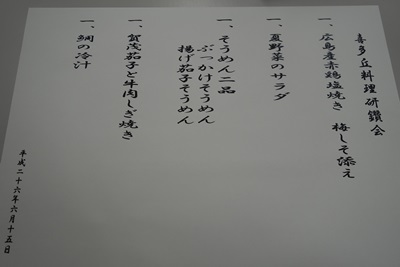 喜多丘料理研鑽会
一、広島産赤鶏塩焼き 梅しそ添え
一、夏野菜のサラダ
一、そうめん二品
ぶっかけそうめん
揚げ茄子そうめん
一、賀茂茄子と牛肉しぎ焼き
一、鯛の冷汁
平成二十六年六月十五日